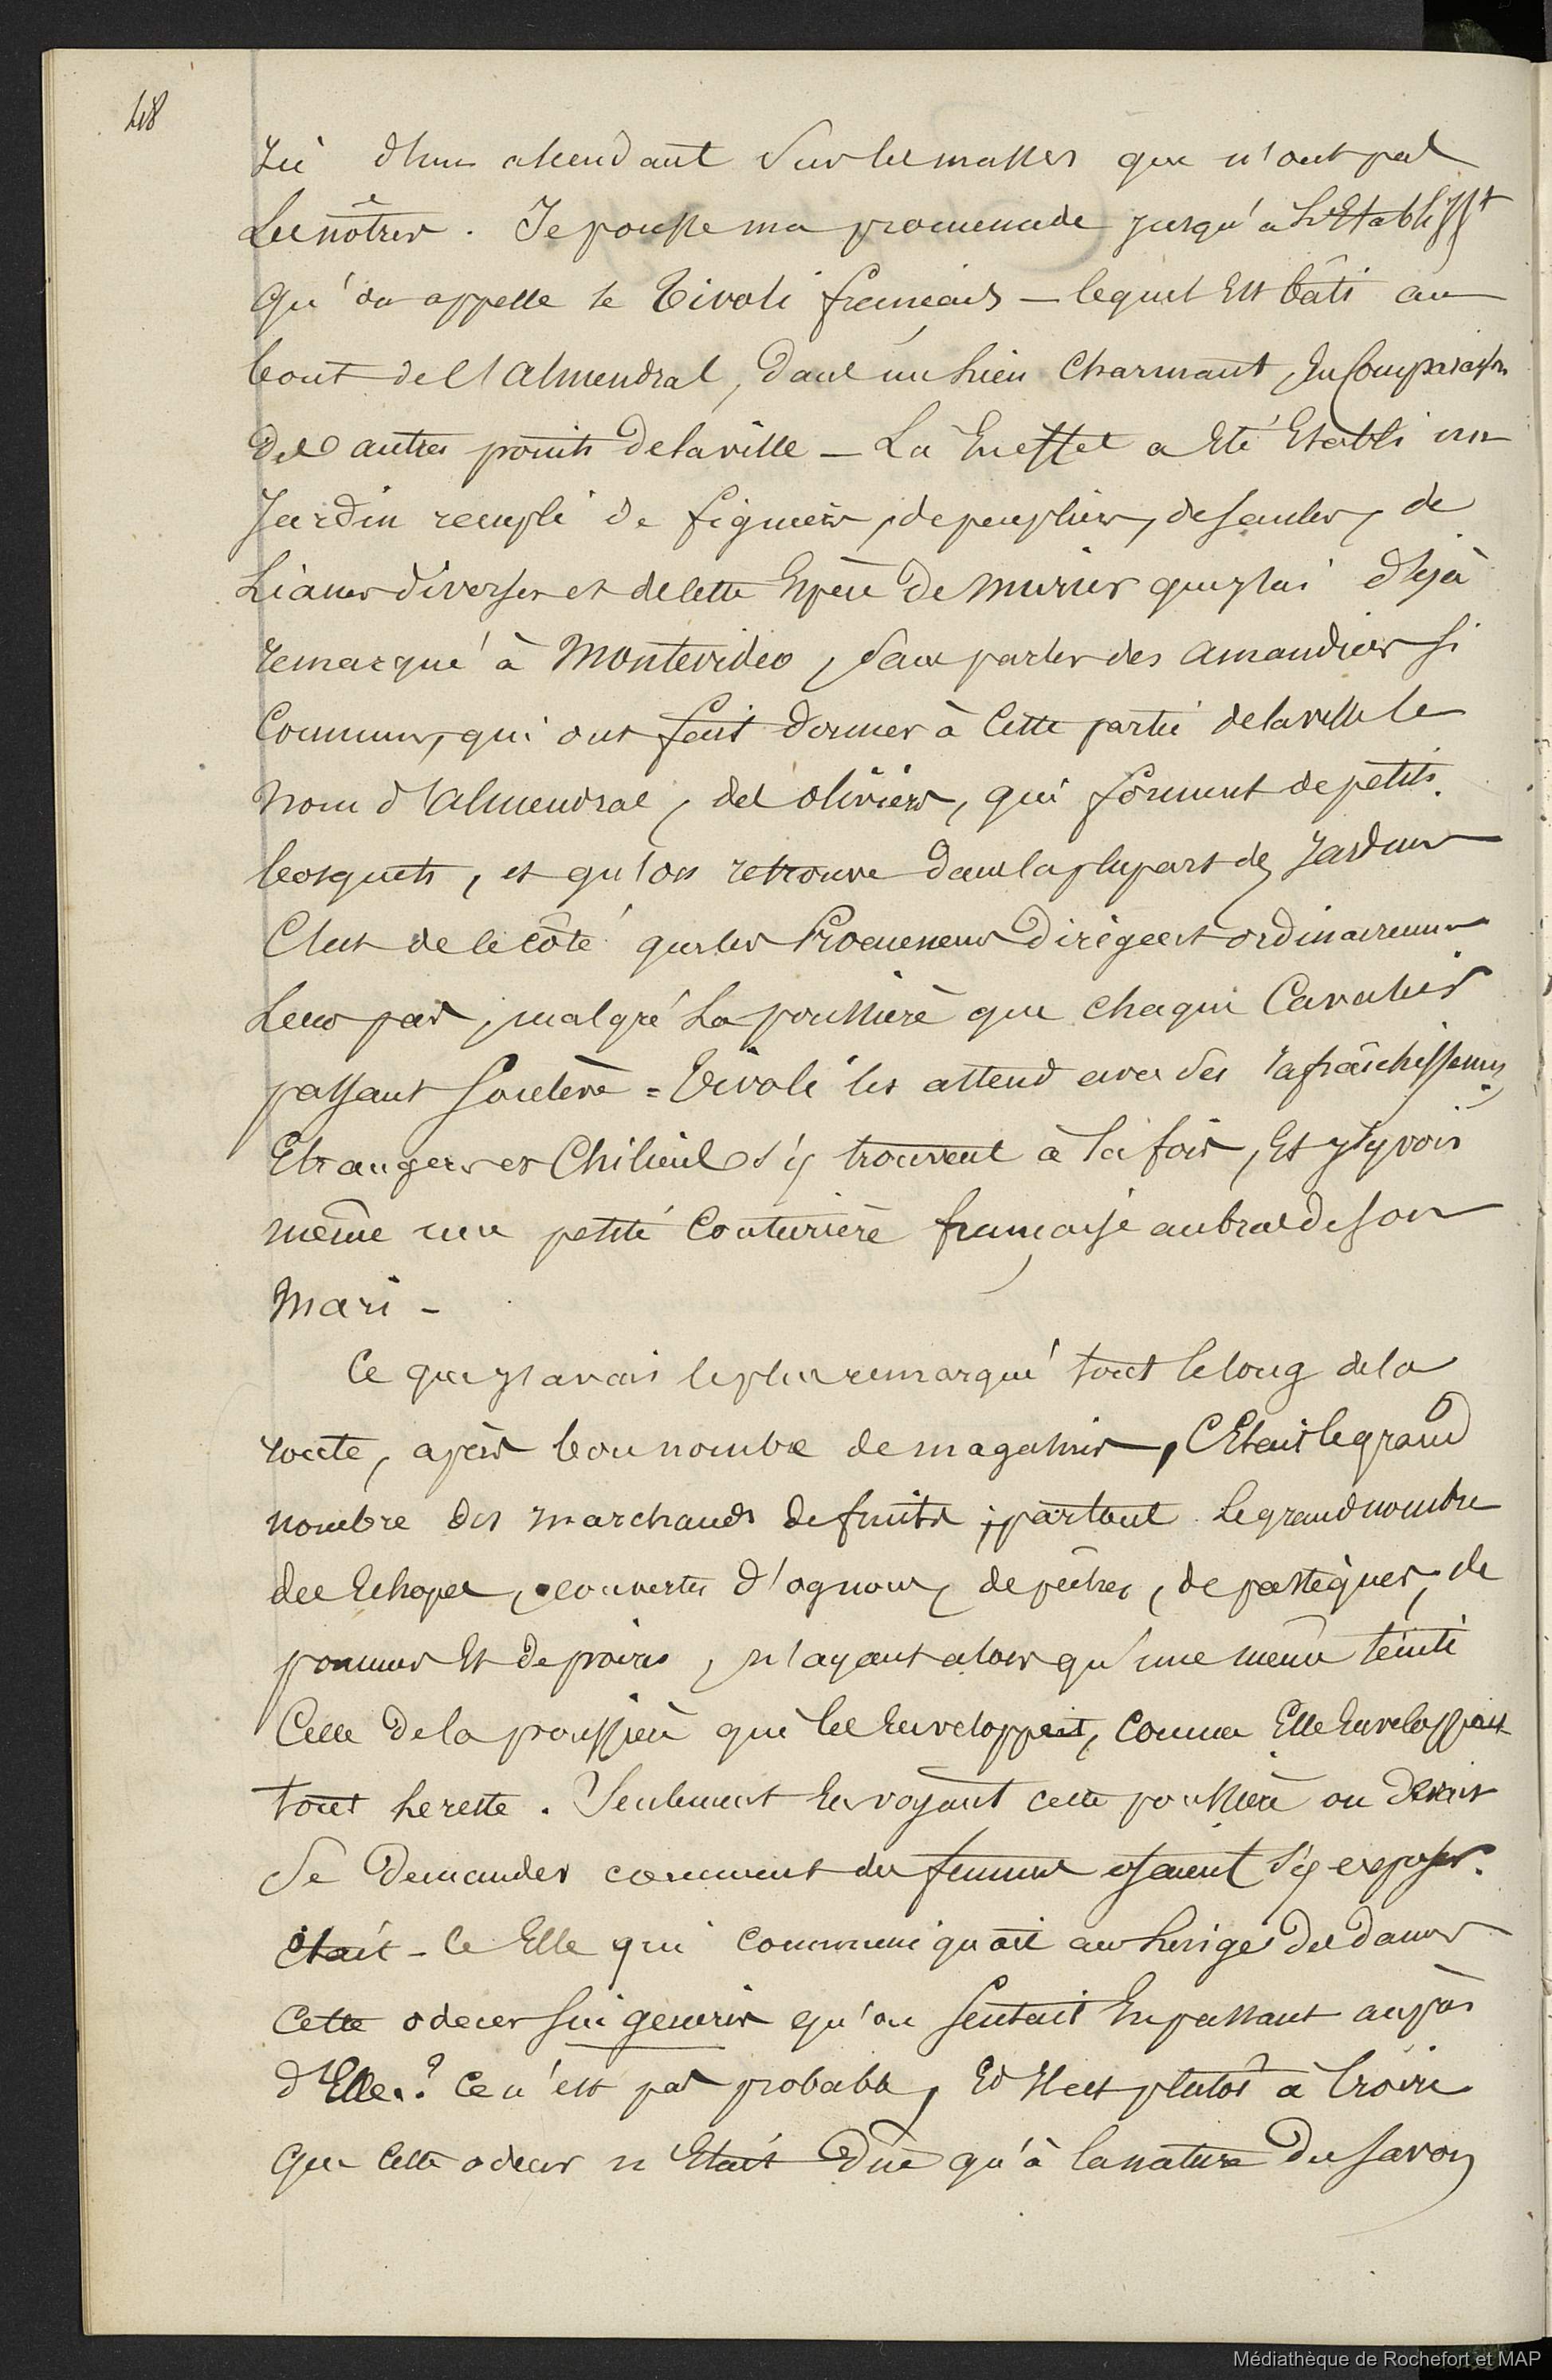 48
ici d'un ascendant sur les masses que n'ont pas
les nôtres. Je pousse ma promenade jusqu'à l'Etablisst
qu'on appelle le Tivoli français — lequel est bâti au
bout de l'Almendral, dans un lieu charmant, en comparaison
des autres points de la ville — Là en effet a été établi un
Jardin rempli de figuiers, de peupliers, de saules, de
Lianes diverses et de cette espèce de muriers que j'ai déjà
remarqué à Montevideo, sans parler des amandiers si
communs, qui ont fait donner à cette partie de la ville le
nom d'Almendral, des oliviers, qui forment de petits
bosquets, et qu'on retrouve dans la plupart des Jardins
C'est de ce côté que les Promeneurs dirigent ordinairement
leurs pas, malgré la poussière que chaque Cavalier
passant soulève = Tivoli les attend avec ses rafraîchissemens
Etrangers et Chiliens s'y trouvent à la fois, et j'y vois
même une petite Couturière française au bras de son
Mari -
Ce que j'avais le plus remarqué tout le long de la
route, après bon nombre de magasins, C'Etait le grand
nombre des marchands de fruits ; partout le grand nombre
des Echopes, couvertes d'ognons, de pêches, de pastèques, de
pommes et de poires, n'ayant alors qu'une même teinte
Celle de la poussière qui les Enveloppait, comme Elle Enveloppait
tout le reste. Seulement En voyant cette poussière on devait
se demander comment des femmes osaient s'y exposer.
était-ce Elle qui communiquait au linge des dames
cette odeur sui generis qu'on sentait En passant auprès
d'Elles ? Ce n'est pas probable, Et il est plutôt à croire
que cette odeur n'Etait dûe qu'à la nature du savon
Médiathèque de Rochefort et MAP